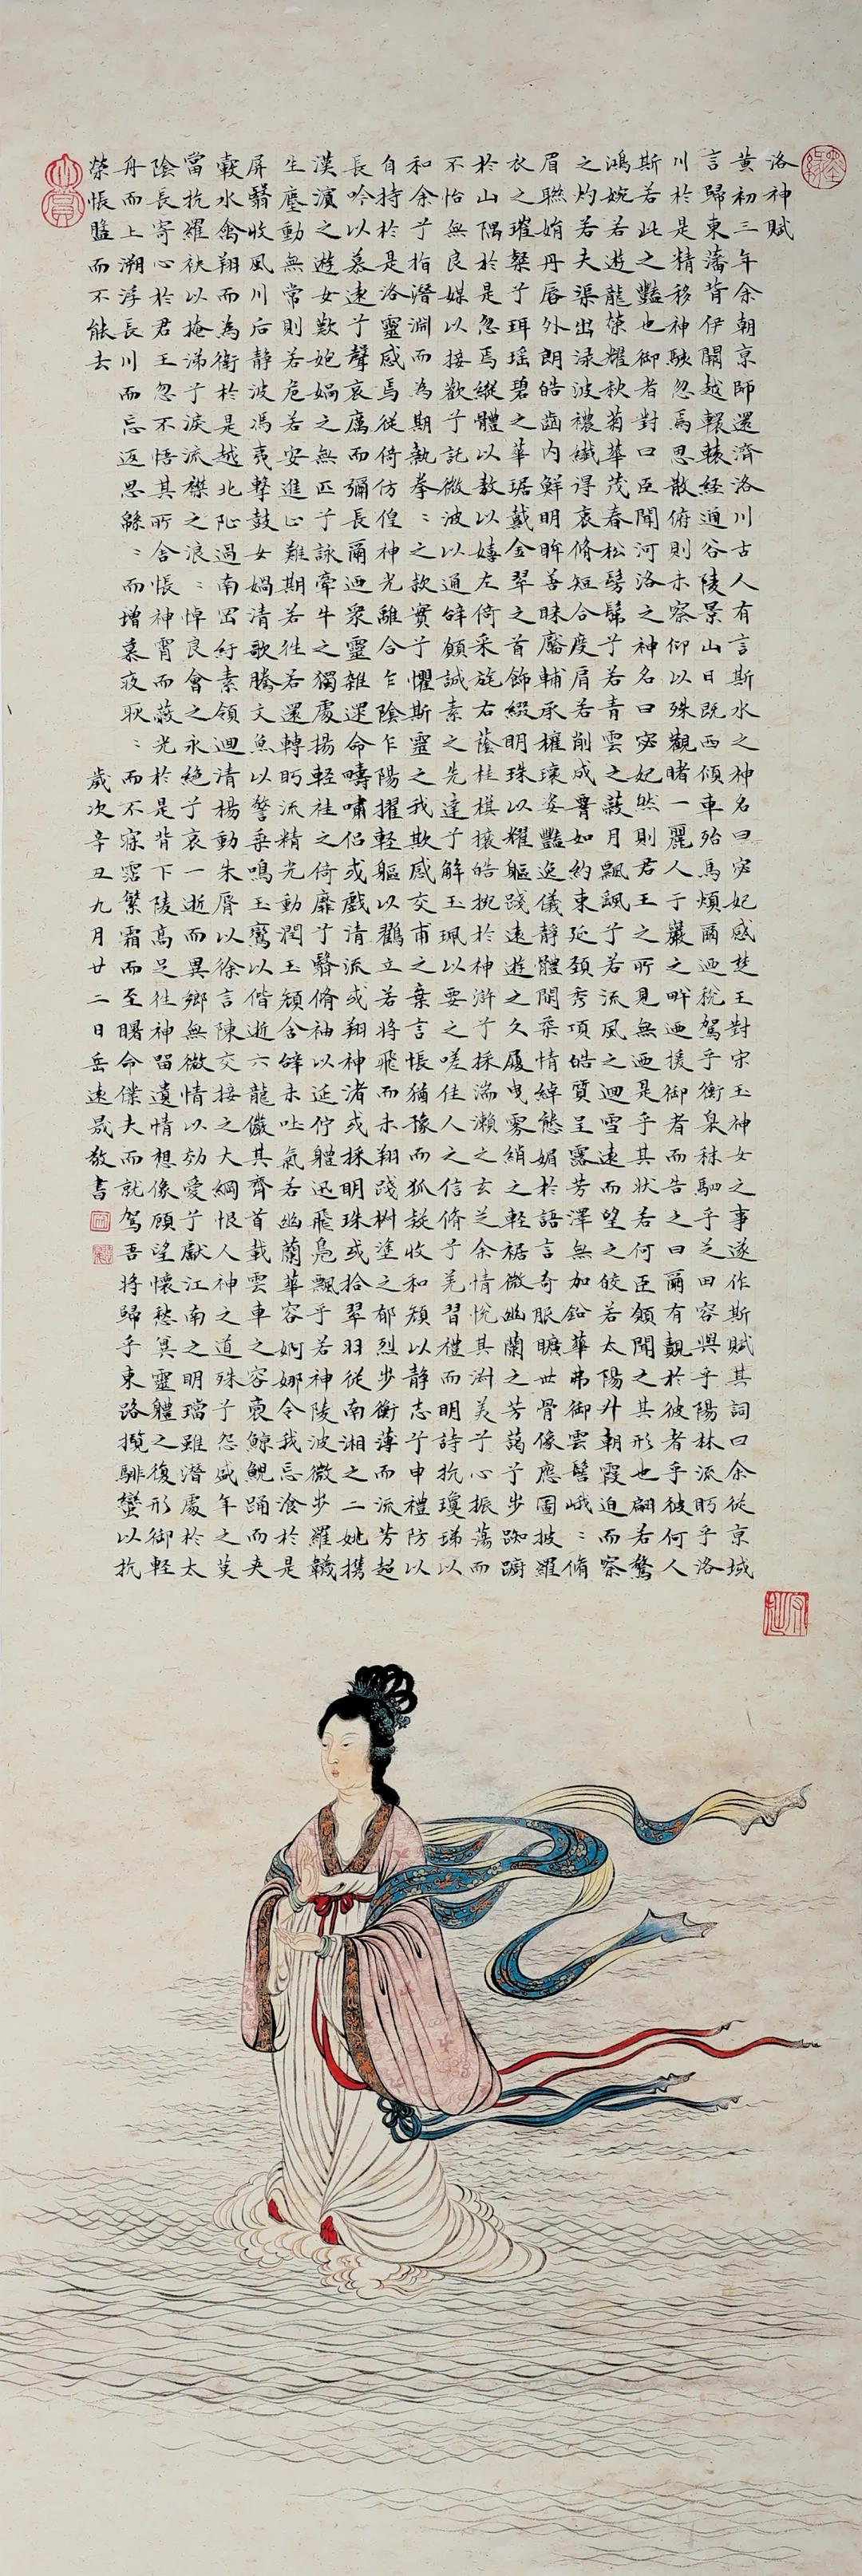 洛神賦
黃初三年余朝京師還濟洛川古人有言斯水之神名曰宓妃感楚王對宋玉神女之事遂作斯賦其詞曰余從京域
言歸東藩背伊闕越轘轅經通谷陵景山日既西傾車殆馬煩爾迺稅駕乎蘅皋秣駟乎芝田容與乎陽林流眄乎洛
川於是精移神駭忽焉思散俯則未察仰以殊觀睹一麗人于巖之畔迺援御者而告之曰爾有覿於彼者乎彼何人
斯若此之豔也御者對曰臣聞河洛之神名曰宓妃然則君王之所見無迺是乎其狀若何臣願聞之其形也翩若驚
鴻婉若遊龍榮耀秋菊華茂春松髣髴兮若青雲之蔽月飄颻兮若流風之迴雪遠而望之皎若太陽升朝霞迫而察
之灼若夫渠出淥波襛纖得衷脩短合度肩若削成腰如約束延頸秀項皓質呈露芳澤無加鉛華弗御雲髻峨〻脩
眉聯娟丹唇外朗皓齒內鮮明眸善睞靨輔承權瓌姿豔逸儀靜體閑柔情綽態媚於語言奇服曠世骨像應圖披羅
衣之璀粲兮珥瑤碧之華琚戴金翠之首飾綴明珠以耀軀踐遠遊之文履曳霧綃之輕裾微幽蘭之芳藹兮步踟躕
於山隅於是忽焉縱體以敖以嬉左倚采旄右蔭桂旗攘皓捥於神滸兮採湍瀨之玄芝余情悅其淑美兮心振蕩而
不怡無良媒以接歡兮託微波以通辭願誠素之先達兮解玉珮以要之嗟佳人之信脩兮羌習禮而明詩抗瓊珶以
和余兮指潛淵而為期執拳〻之款實兮懼斯靈之我欺感交甫之棄言悵猶豫而狐疑收和顏以靜志兮申禮防以
自持於是洛靈感焉徙倚仿偟神光離合乍陰乍陽擢輕軀以鶴立若將飛而未翔踐椒塗之郁烈步衡薄而流芳超
長吟以慕遠兮聲哀厲而彌長爾迺眾靈雜遝命疇嘯侶或戲清流或翔神渚或採明珠或拾翠羽從南湘之二姚攜
漢濱之遊女歎匏媧之無匹兮詠牽牛之獨處揚輕袿之倚靡兮翳脩袖以延佇體迅飛鳧飄乎若神陵波微步羅韈
生塵動無常則若危若安進止難期若往若還轉眄流精光動潤玉顏含辭未吐氣若幽蘭華容婀娜令我忘飡於是
屏翳收風川后靜波馮夷擊鼓女媧清歌騰文魚以警乘鳴玉鸞以偕逝六龍儼其齊首載雲車之容裔鯨鯢踊而夾
轂水禽翔而為衛於是越北沚過南岡紆素領迴清楊動朱脣以徐言陳交接之大綱恨人神之道殊兮怨盛年之莫
當抗羅袂以掩涕兮淚流襟之浪〻悼良會之永絕兮哀一逝而異鄉無微情以効愛兮獻江南之明璫雖潛處於太
陰長寄心於君王忽不悟其所舍悵神宵而蔽光於是背下陵高足往神留遺情想像顧望懷愁冀靈體之復形御輕
舟而上溯浮長川而忘返思緜〻而增慕夜耿〻而不寐霑繁霜而至曙命僕夫而就駕吾將歸乎東路攬騑轡以抗
策悵盤而不能去 歲次辛丑九月廿二日岳速晟敬書